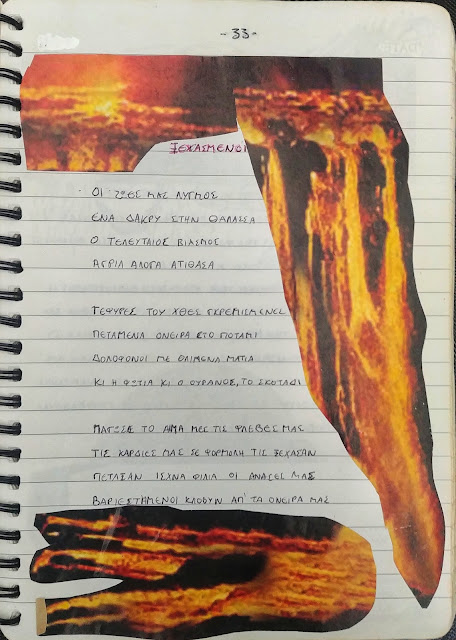 -33-
ΞΕΧΑΣΜΕΝΟΙ
ΟΙ ΖΩΕΣ ΜΑΣ ΛΥΓΜΟΣ
ΕΝΑ ΔΑΚΡΥ ΣΤΗΝ ΘΑΛΑΣΣΑ
Ο ΤΕΛΕΥΤΑΙΟΣ ΒΙΑΣΜΟΣ
ΑΓΡΙΑ ΑΛΟΓΑ ΑΤΙΘΑΣΑ
ΓΕΦΥΡΕΣ ΤΟΥ ΧΘΕΣ ΓΚΡΕΜΙΣΜΕΝΕΣ
ΠΕΤΑΜΕΝΑ ΟΝΕΙΡΑ ΣΤΟ ΠΟΤΑΜΙ
ΔΟΛΟΦΟΝΟΙ ΜΕ ΘΛΙΜΕΝΑ ΜΑΤΙΑ
ΚΙ Η ΦΩΤΙΑ ΚΙ Ο ΟΥΡΑΝΟΣ, ΤΟ ΣΚΟΤΑΔΙ
ΠΑΓΩΣΕ ΤΟ ΑΙΜΑ ΜΕΣ ΤΙΣ ΦΛΕΒΕΣ ΜΑΣ
ΤΙΣ ΚΑΡΔΙΕΣ ΜΑΣ ΣΕ ΦΟΡΜΟΛΗ ΤΙΣ ΞΕΧΑΣΑΝ
ΠΕΤΑΞΑΝ ΙΣΧΝΑ ΦΙΛΙΑ ΟΙ ΑΝΑΣΕΣ ΜΑΣ
ΒΑΡΙΕΣΤΗΜΕΝΟΙ ΚΛΟΟΥΝ ΑΠ' ΤΑ ΟΝΕΙΡΑ ΜΑΣ